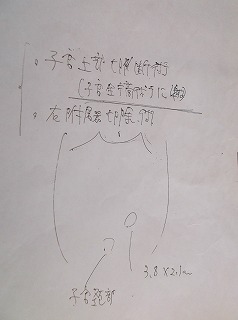 子宮上部切断術
(子宮全摘
右附属器切除術
3.8×2.1
子宮頸部